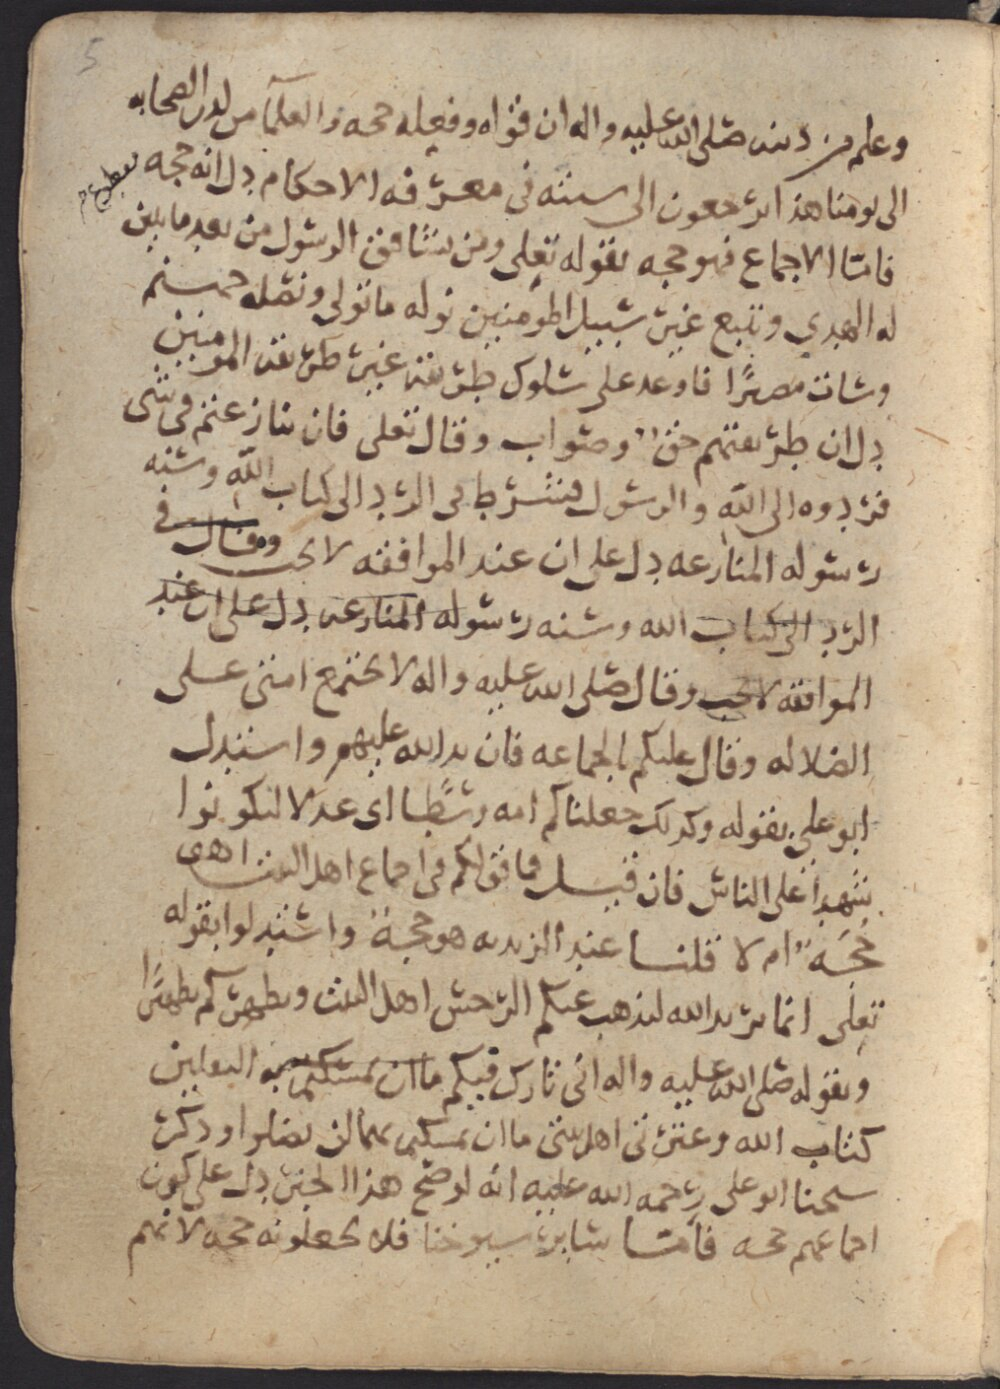 5
وعلم من دينه صلى الله عليه واله ان قوله وفعله حجه والعلما من لدن الصحابه
الى يومنا هذا يرجعون الى سنته فى معرفه الاحكام دل انه حجه
فامّا الاجماع فهو حجه بقوله تعلى ومن يشاقق الرسول من بعد ما تبين
له الهدي ويتبع غير سبيل المؤمنين نوله ما تولى ونصله جهنم
وساءت مصيرًا فاوعد على سلوك طريقه غير طريقه المومنين
دل ان طريقتهم حق وصواب وقال تعلى فان تنازعتم فى شى
فردوه الى الله والرسول فشرط فى الرد الى كتاب الله وسنه
رسوله المنازعه دل على ان عند الموافقه لا يجب وقال فى
الرد الى كتاب الله وسنه رسوله المنازعه دل على ان عند
الموافقه لا يجب وقال صلى الله عليه واله لا تجتمع امتى على
الضلاله وقال عليكم بالجماعه فان يد الله عليهم واستدل
ابو على بقوله وكذلك جعلناكم امه وسطًا اى عدلا لتكونوا
شهدا على الناس فان قيل فما قولكم فى اجماع اهل البيت اهى
حُجَّهٌ ام لا قلنا عند الزيديه هو حجهٌ واستدلوا بقوله
تعلى انما يريد الله ليذهب عنكم الرجس اهل البيت ويطهركم تطهيرًا
وبقوله صلى الله عليه واله انى تارك فيكم ما ان تمسكتم به الثقلين
كتاب الله وعترتى اهل بيتى ما ان تمسكتم بهما لن تضلوا وذكر
شيخنا ابو على رحمه الله عليه انه لو صح هذا الخبر دل على كون
اجماعهم حجه فامّا سائر شيوخنا فلا يجعلونه حجه لانهم